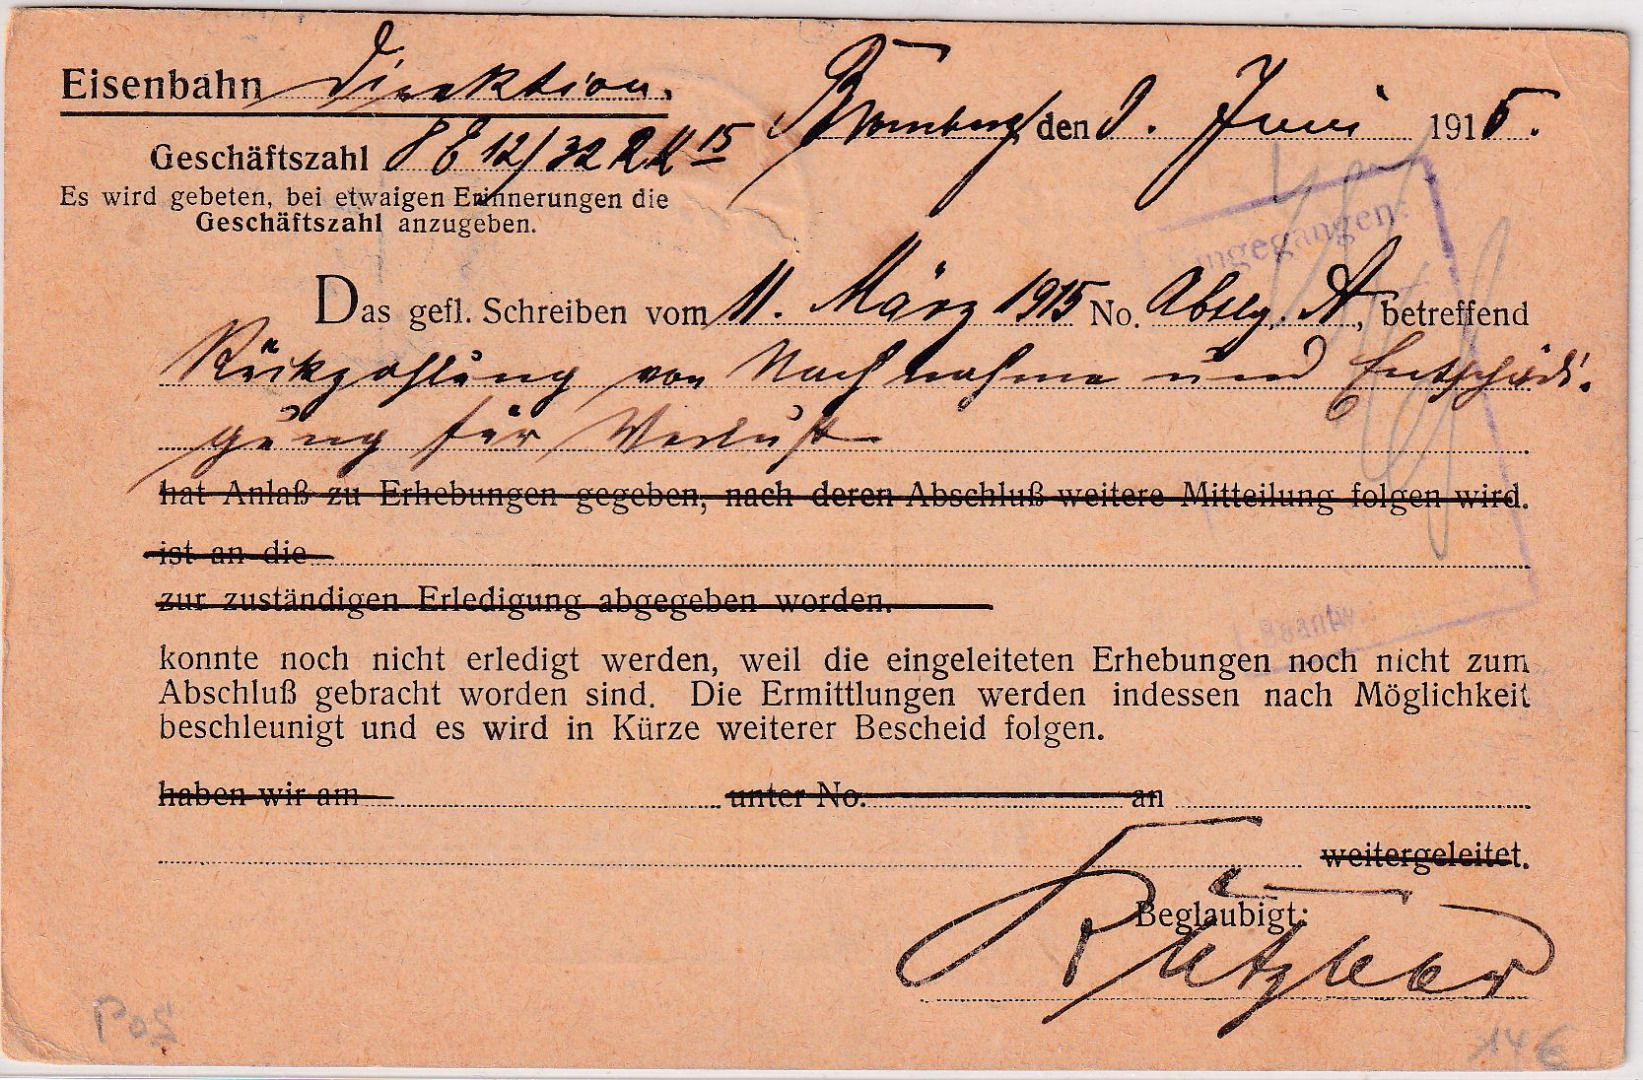 Eisenbahn Direktion.
Bromberg, den 9. Juni 1915.
Geschäftszahl 8 E 12/32 R K 15
Es wird gebeten, bei etwaigen Erinnerungen die
Geschäftszahl anzugeben.
Eingegangen:
Das gefl. Schreiben vom 11. März 1915 No. Abtlg. A, betreffend
Rückzahlung von Nachnahme und Entschädi-
gung für Verlust
hat Anlaß zu Erhebungen gegeben, nach deren Abschluß weitere Mitteilung folgen wird.
ist an die
zur zuständigen Erledigung abgegeben worden.
Beantw.
konnte noch nicht erledigt werden, weil die eingeleiteten Erhebungen noch nicht zum
Abschluß gebracht worden sind. Die Ermittlungen werden indessen nach Möglichkeit
beschleunigt und es wird in Kürze weiterer Bescheid folgen.
haben wir am unter No. an
weitergeleitet.
Beglaubigt:
Pos
14 €